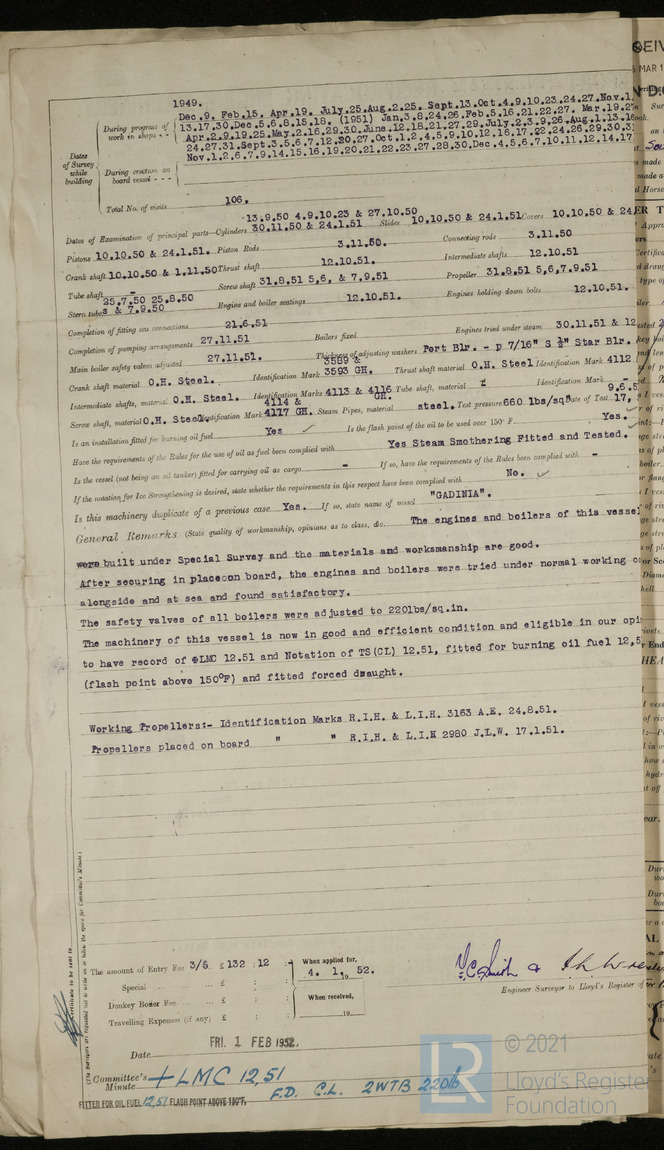 1949.
Dec.9. Feb.15. Apr.19. July.25.Aug.2.25. Sept.13.Oct.4.9.10.23.24.27.Nov.1
During progress of work in shops - -
13.17.30.Dec.5.6.8.15.18. (1951) Jan.3.8.24.26.Feb.5.16.21.22.27. Mar.19.2
Apr.2.9.19.25.May.2.16.29.30.June.12.18.21.27.29.July.2.3.9.26.Aug.1.13.1
24.27.31.Sept.3.5.6.7.12.20.27.Oct.1.2.4.5.9.10.12.16.17.22.24.26.29.30.3
Nov.1.2.6.7.9.14.15.16.19.20.21.22.23.27.28.30.Dec.4.5.6.7.10.11.12.14.17
Dates of Survey while building
During erection on board vessel - - -
Total No. of visits 106.
13.9.50 4.9.10.23 & 27.10.50
Dates of Examination of principal parts—Cylinders 30.11.50 & 24.1.51 Slides 10.10.50 & 24.1.51 Covers 10.10.50 & 24
Pistons 10.10.50 & 24.1.51. Piston Rods 3.11.50. Connecting rods 3.11.50
Crank shaft 10.10.50 & 1.11.50 Thrust shaft 12.10.51. Intermediate shafts 12.10.51
Tube shaft - Screw shaft 31.8.51 5,6, & 7.9.51 Propeller 31.8.51 5,6,7.9.51
25.7.50 25.8.50
Stern tubes & 7.9.50 Engine and boiler seatings 12.10.51. Engines holding down bolts 12.10.51.
Completion of fitting sea connections 21.6.51
Completion of pumping arrangements 27.11.51 Boilers fixed Engines tried under steam 30.11.51 & 12
Main boiler safety valves adjusted 27.11.51. Thickness of adjusting washers Port Blr. - P 7/16" S ½" Star Blr.
3589 &
Crank shaft material O.H. Steel. Identification Mark 3593 GH. Thrust shaft material O.H. Steel Identification Mark 4112
Intermediate shafts, material O.H. Steel. Identification Marks 4113 & 4116 GH. Tube shaft, material Identification Mark -
4114 &
Screw shaft, material O.H. Steel Identification Mark 4117 GH. Steam Pipes, material steel. Test pressure 660 lbs/sq" Date of Test 9.6.5 17,
Is an installation fitted for burning oil fuel Yes Is the flash point of the oil to be used over 150°F. Yes.
Have the requirements of the Rules for the use of oil as fuel been complied with Yes Steam Smothering Fitted and Tested.
Is the vessel (not being an oil tanker) fitted for carrying oil as cargo - If so, have the requirements of the Rules been complied with -
If the notation for Ice Strengthening is desired, state whether the requirements in this respect have been complied with No.
Is this machinery duplicate of a previous case Yes. If so, state name of vessel "GADINIA".
General Remarks (State quality of workmanship, opinions as to class, &c. The engines and boilers of this vessel
were built under Special Survey and the materials and worksmanship are good.
After securing in place on board, the engines and boilers were tried under normal working co
alongside and at sea and found satisfactory.
The safety valves of all boilers were adjusted to 220lbs/sq.in.
The machinery of this vessel is now in good and efficient condition and eligible in our opi
to have record of ✠LMC 12.51 and Notation of TS(CL) 12.51, fitted for burning oil fuel 12,5
(flash point above 150°F) and fitted forced draught.
Working Propellers:- Identification Marks R.I.H. & L.I.H. 3163 A.E. 24.8.51.
Propellers placed on board " " R.I.H. & L.I.H 2980 J.L.W. 17.1.51.
Certificate to be sent to
(The Surveyors are requested not to write on or below the space for Committee's Minute.)
The amount of Entry Fee 3/6. £ 132 : 12 :
Special ... ... £ : :
Donkey Boiler Fee ... ... £ : :
Travelling Expenses (if any) £ : :
When applied for,
4. 1. 19 52.
When received,
19
Engineer Surveyor to Lloyd's Register of
FRI. 1 FEB 1952.
Date
Committee's Minute +LMC 12,51
F.D. C.L. 2WTB 220lb
FITTED FOR OIL FUEL 12,51 FLASH POINT ABOVE 150°F.
LR
© 2021
Lloyd's Register
Foundation